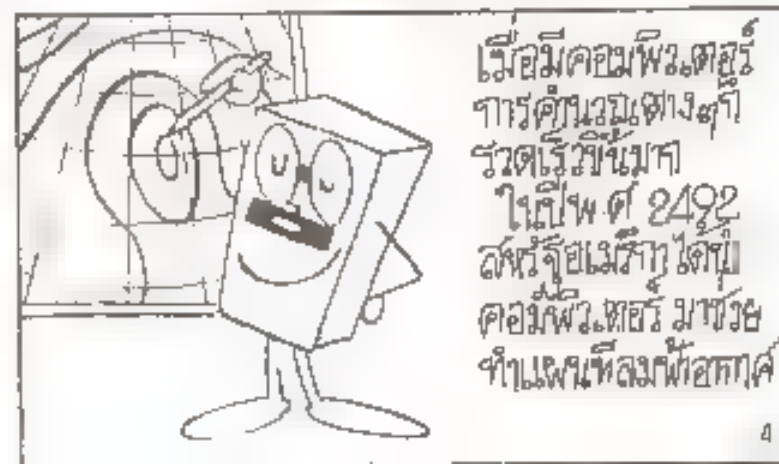 เมื่อมีคอมพิวเตอร์
การคำนวณต่างๆก็
รวดเร็วขึ้นมาก
ในปีพ.ศ 2492
สหรัฐอเมริกาได้
คอมพิวเตอร์ มาช่วย
ทำแผนที่ลมฟ้าอากาศ
4